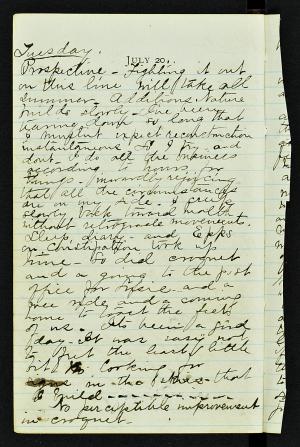 Tuesday.
JULY 20.
Prospective - Fighting it out
on this line will take all
summer - Additions. Nature
builds slowly - I've been
tearing down so long that
I mustn't expect reconstruction
instantaneous. So I try - and
don't - I do all the business
according to hours, or
things - inwardly
that all the circumstances
are on my side. I creep
slowly back toward health
without retrograde movement.
Sleep, diary - and Epps
on Constipation took up
time - So did croquet
and a going to the post
office for Susie - and a
free ride, and a coming
home to toast the feet
of us. It's been a good
day - It was easy not
to fret the least little
bit looking for
in the that
I build
No perceptible improvement
in croquet.